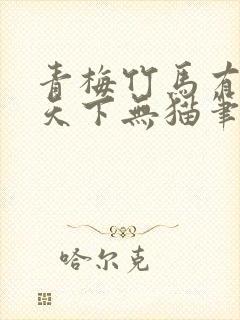 青梅竹馬有
天下無猫筆
哈尔克